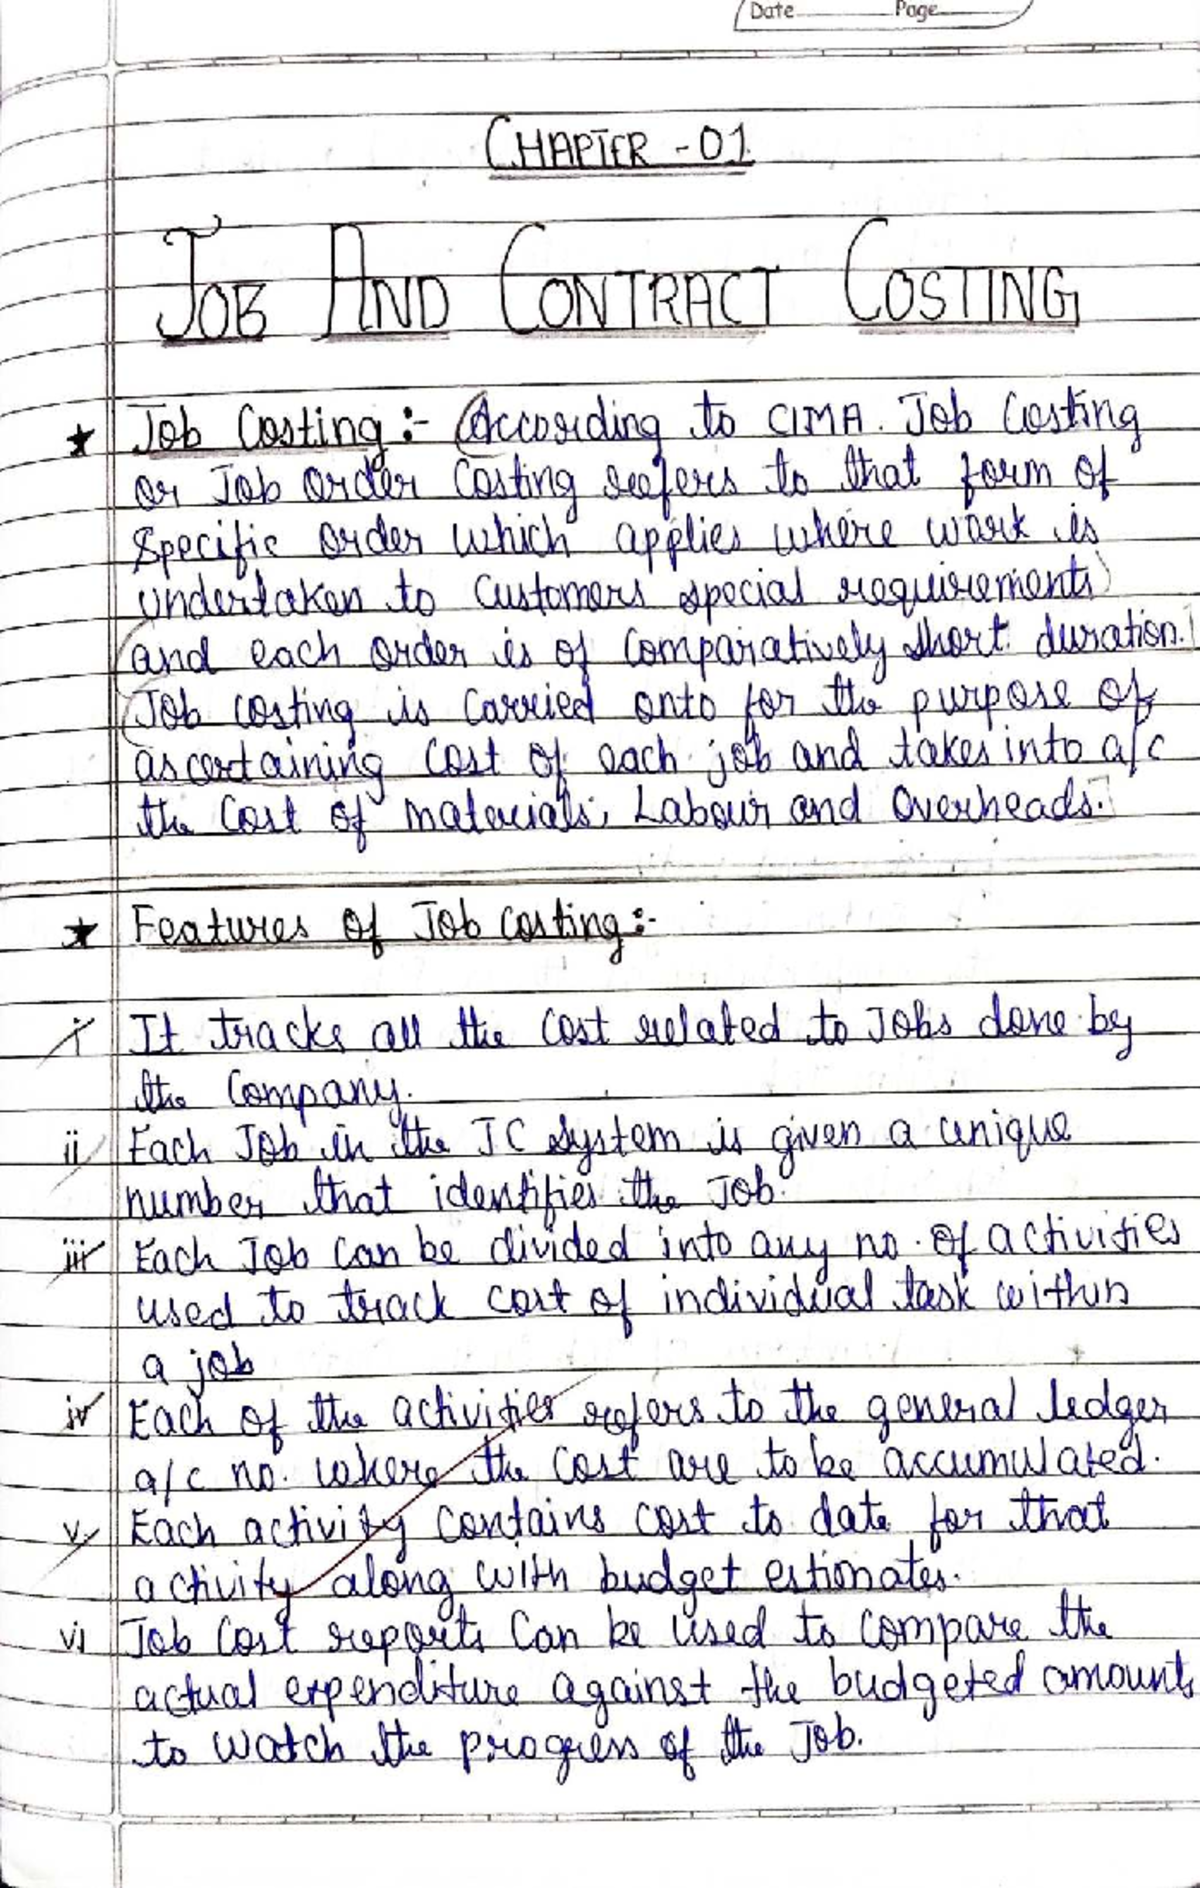 Date Page
CHAPTER - 01
JOB AND CONTRACT COSTING
★ Job Costing :- (According to CIMA. Job Costing
or Job order Costing refers to that form of
Specific order which applies where work is
undertaken to Customers special requirements)
(and each order is of Comparatively short duration.]
(Job costing is Carried onto for the purpose of
ascertaining cost of each job and takes into a/c
the Cost of materials, Labour and Overheads.]
★ Features of Job costing :-
i It tracks all the Cost related to Jobs done by
the Company.
ii Each Job in the JC System is given a unique
number that identifies the Job.
iii Each Job can be divided into any no. of activities
used to track cost of individual task within
a job
iv Each of the activities refers to the general ledger
a/c no. where the Cost are to be accumulated.
v Each activity contains cost to date for that
activity along with budget estimates.
vi Job Cost reports Can be used to compare the
actual expenditure against the budgeted amounts
to watch the progress of the Job.